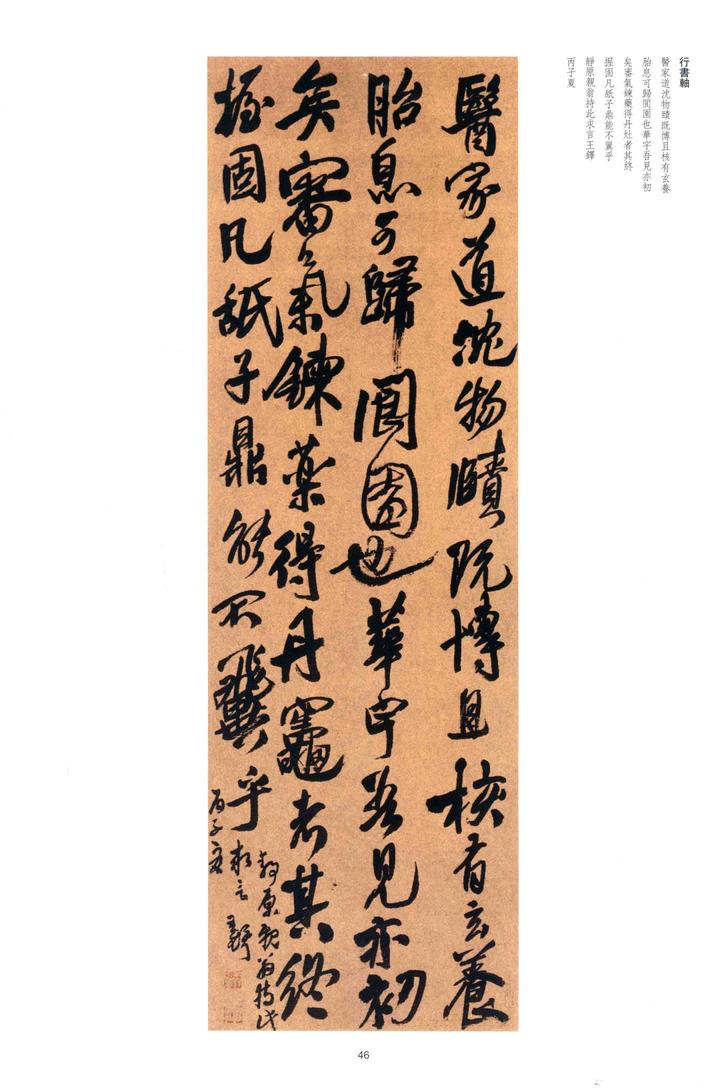 行書軸
醫家道沈物賾既博且核有玄養
胎息可歸閬園也華宇吾見亦初
矣審氣練藥得丹灶者其終
握固凡舐子鼎能不翼乎
靜原親翁持此求言王鐸
丙子夏
醫家道沈物賾既博且核有玄養
胎息可歸閬園也華宇吾見亦初
矣審氣鍊藥得丹竈者其終
握固凡舐子鼎能不翼乎
靜原親翁持此
求言王鐸
丙子夏
46